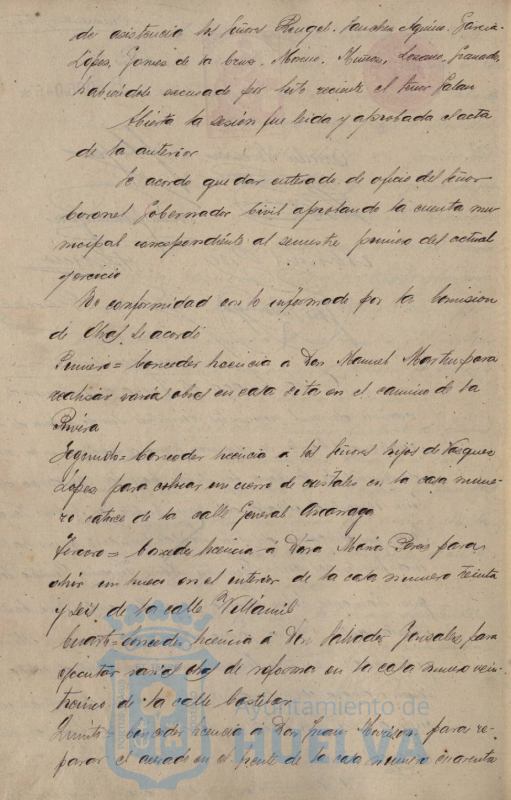 de asistencia los Señores Rangel, Sanchez Aquino, Garcia
López, Gomez de la Cruz, Moreno, Muñoz, Lozano, Granado,
habiendole escusado por luto reciente el señor Galan
Abierta la sesión fue leida y aprobada el acta
de la anterior
Se acordo quedar enterado de oficio del Señor
Coronel Gobernador Civil aprobando la cuenta mu-
nicipal correspondiente al semestre primero del actual
ejercicio
De conformidad con lo informado por la Comision
de Obras se acordó
Primero = Conceder licencia a Don Manuel Martin para
realizar varias obras en casa sita en el camino de la
Rivera
Segundo = Conceder licencia á los Señores hijos de Vazquez
López para colocar un cierro de cristales en la casa nume-
ro catorce de la calle General Azcarraga
Tercero = Conceder licencia á Doña Maria Perez para
abrir un hueco en el interior de la casa numero treinta
y seis de la calle Villamil
Cuarto = Conceder licencia á Don Salvador Gonzalez para
ejecutar varias obras de reforma en la casa numero vein-
tinueve de la calle Castelar
Quinto = Conceder licencia á Don Juan Morrison para re-
parar el en el frente de la casa numero cuarenta
Ayuntamiento de
HUELVA